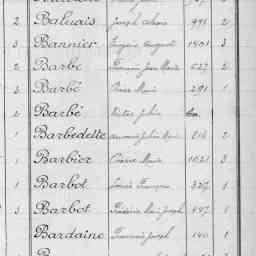 2 Baluais Joseph 991 2
3 Bannier Auguste 1401 3
2 Barbé Jean Marie 627 2
3 Barbé Marie 291 1
2 Barbé Victor Julien
1 Barbedette Julien Marie 216 2
1 Barbier Pierre Marie 1021 3
1 Barbot Louis François 327 1
3 Barbot Frédéric Marie Joseph 497 1
Bardaine François Joseph 140 1